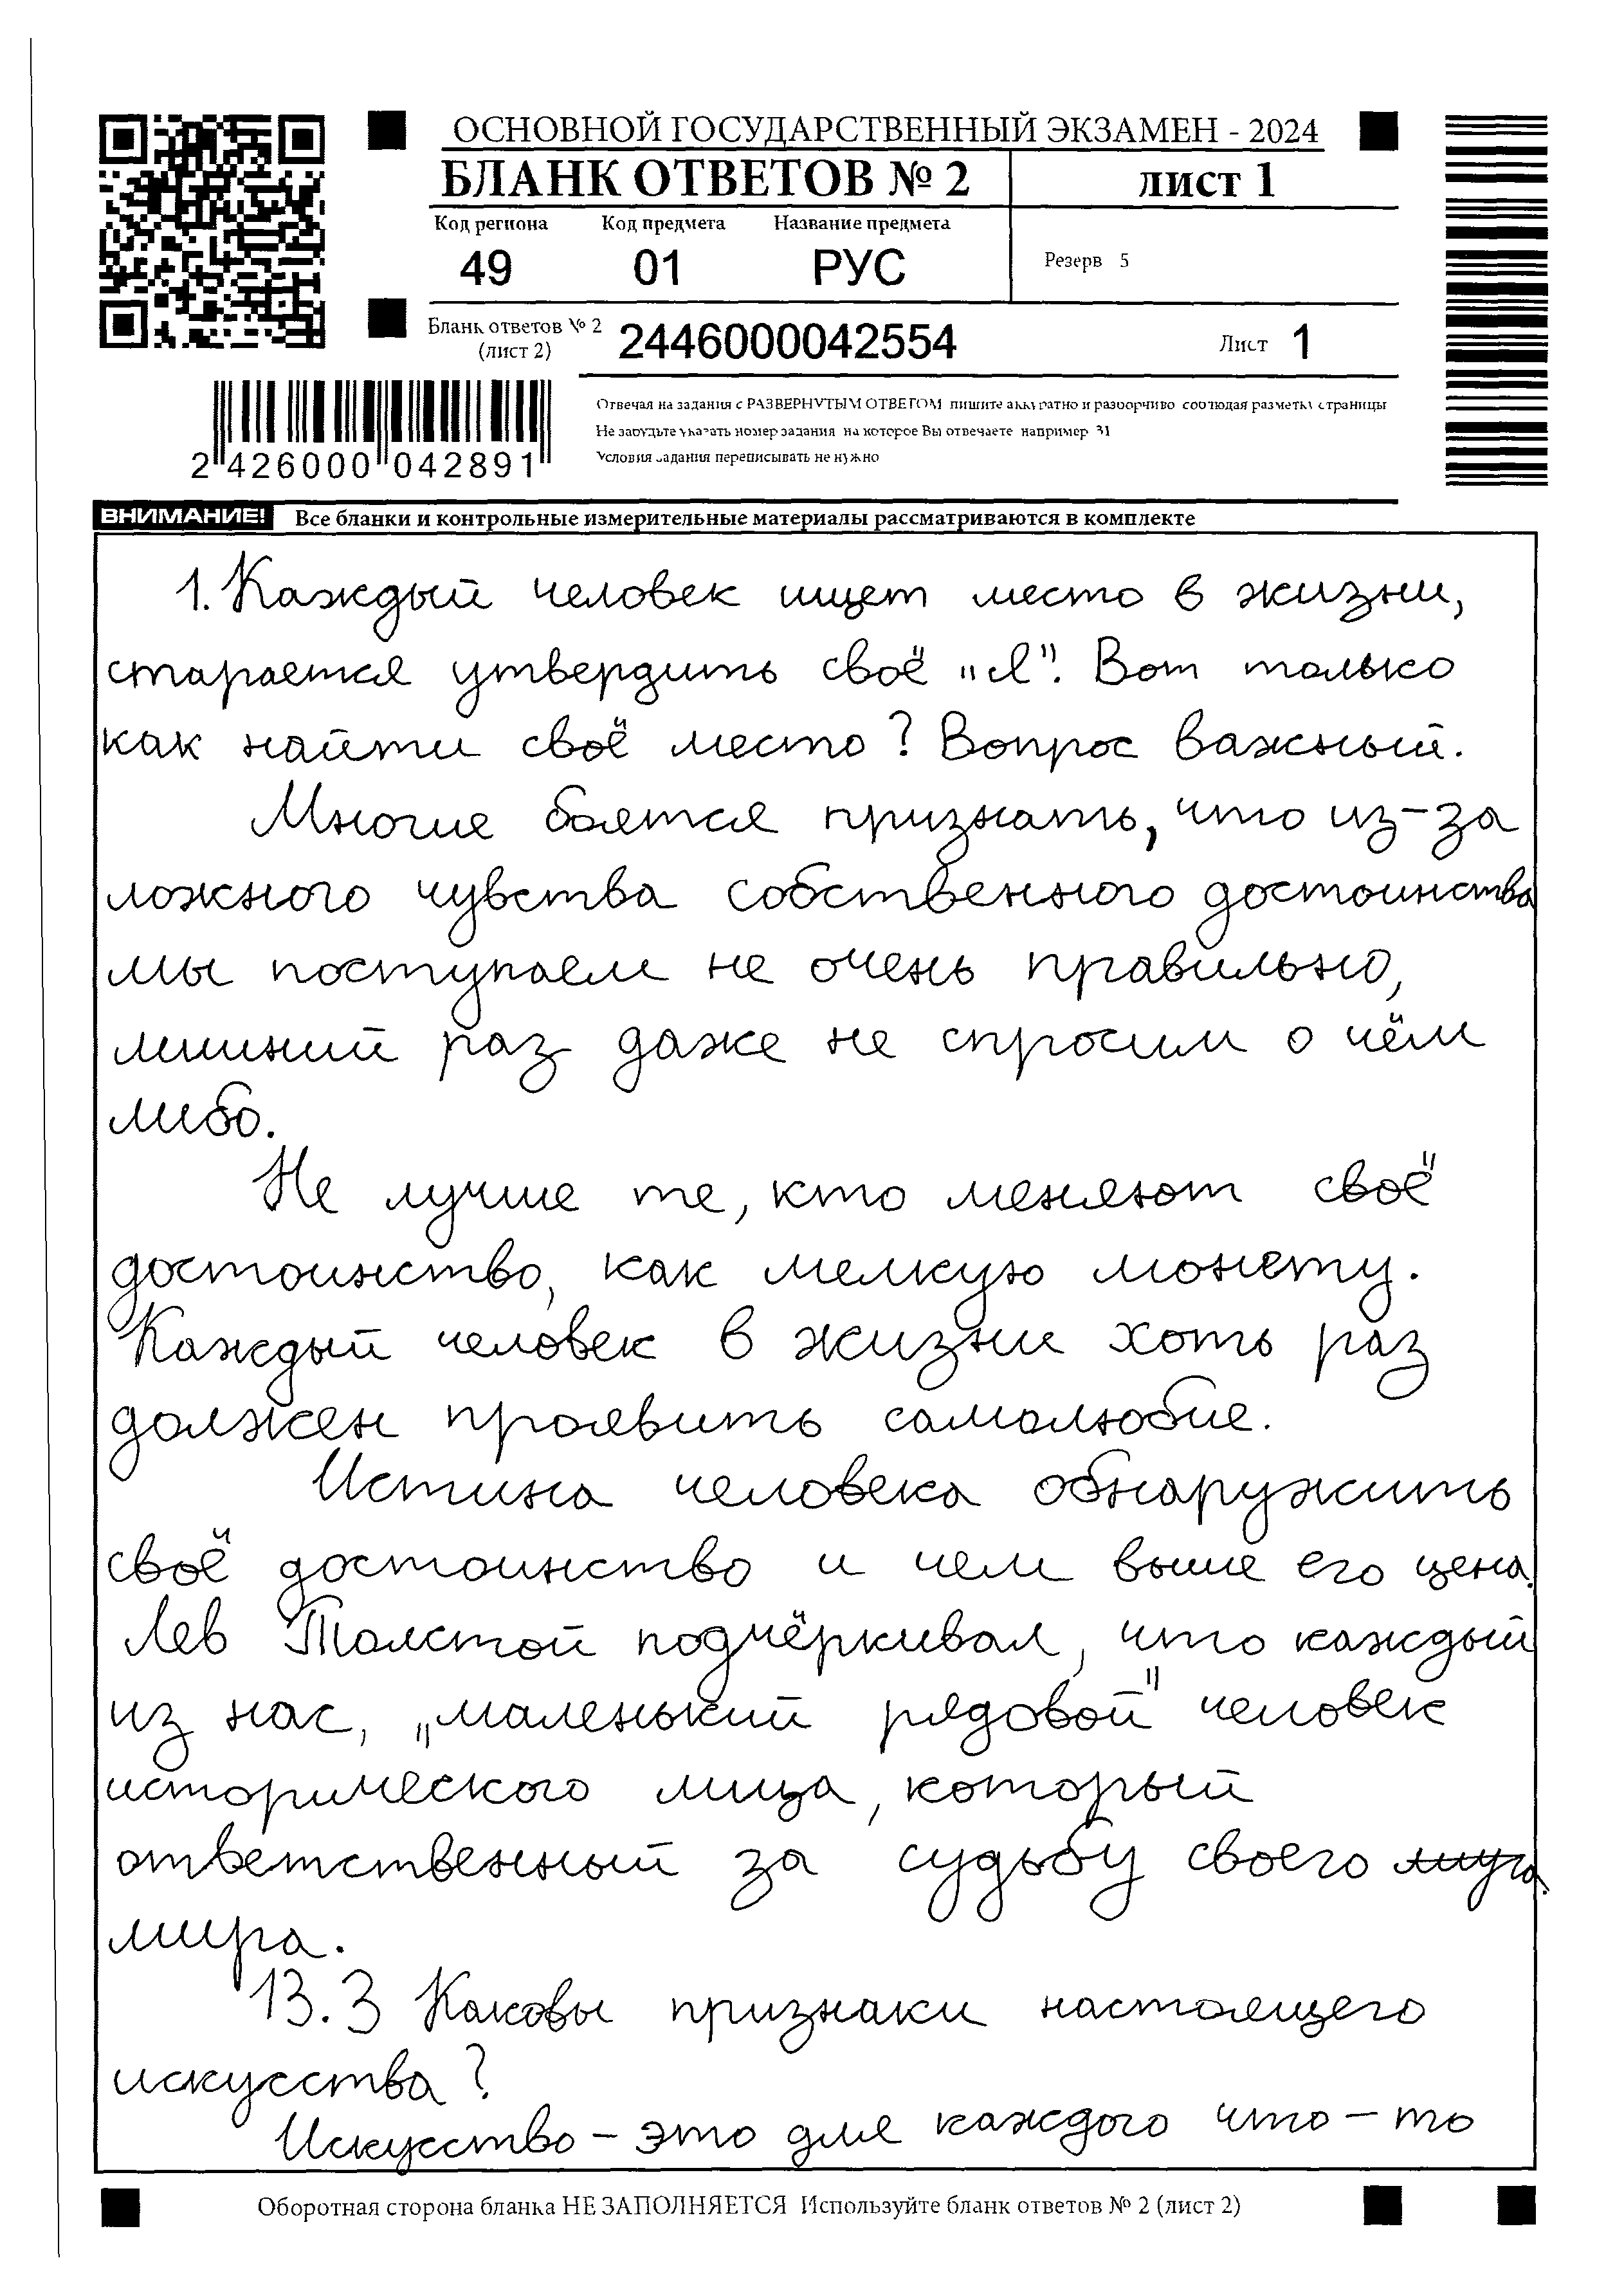 ОСНОВНОЙ ГОСУДАРСТВЕННЫЙ ЭКЗАМЕН - 2024
БЛАНК ОТВЕТОВ № 2
лист 1
Код региона Код предмета Название предмета
49 01 РУС
Резерв 5
Бланк ответов № 2
(лист 2)
2446000042554
Лист 1
Отвечая на задания с РАЗВЕРНУТЫМ ОТВЕТОМ пишите аккуратно и разборчиво соблюдая разметку страницы
Не забудьте указать номер задания на которое Вы отвечаете например 31
Условия задания переписывать не нужно
2 426000 042891
ВНИМАНИЕ! Все бланки и контрольные измерительные материалы рассматриваются в комплекте
1. Каждый человек ищет место в жизни,
старается утвердить своё "я". Вот только
как найти своё место? Вопрос важный.
Многие боятся признать, что из-за
ложного чувства собственного достоинства
мы поступаем не очень правильно,
лишний раз даже не спросим о чём
либо.
Не лучше те, кто меняют своё
достоинство, как мелкую монету.
Каждый человек в жизни хоть раз
должен проявить самолюбие.
Истина человека обнаружить
своё достоинство и чем выше его цена.
Лев Толстой подчёркивал, что каждый
из нас, "маленький рядовой" человек
исторического лица, который
ответственный за судьбу своего
мира.
13.3 Каковы признаки настоящего
искусства?
Искусство - это для каждого что-то
Оборотная сторона бланка НЕ ЗАПОЛНЯЕТСЯ Используйте бланк ответов № 2 (лист 2)